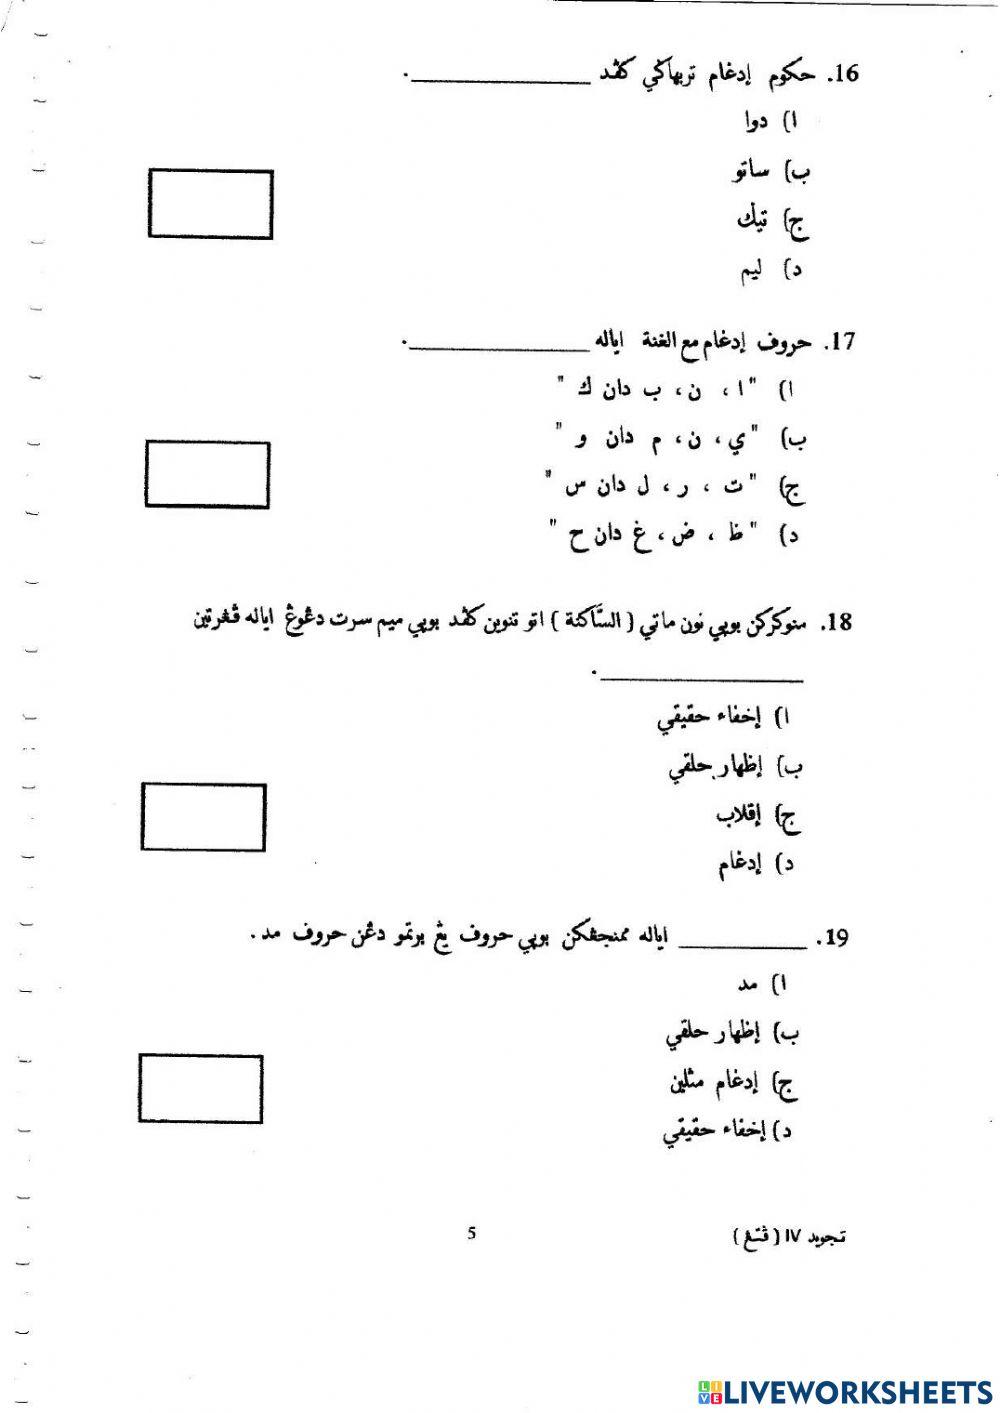 16. حكوم إدغام تربهاڬي كڤد __________ .
ا) دوا
ب) ساتو
ج) تيݢ
د) ليم
17. حروف إدغام مع الغنة اياله __________ .
ا) "ا ، ن ، ب دان ك "
ب) "ي ، ن ، م دان و "
ج) "ت ، ر ، ل دان س "
د) "ظ ، ض ، غ دان ح "
18. منوكركن بوڽي نون ماتي ( السَّاكنة ) اتو تنوين كڤد بوڽي ميم سرت دڠوڠ اياله ڤڠرتين
__________ .
ا) إخفاء حقيقي
ب) إظهار حلقي
ج) إقلاب
د) إدغام
19. __________ اياله ممنجڠكن بوڽي حروف يڠ برتمو دڠن حروف مد .
ا) مد
ب) إظهار حلقي
ج) إدغام مثلين
د) إخفاء حقيقي
تجويد IV ( ڤتڠ )
5
LIVEWORKSHEETS